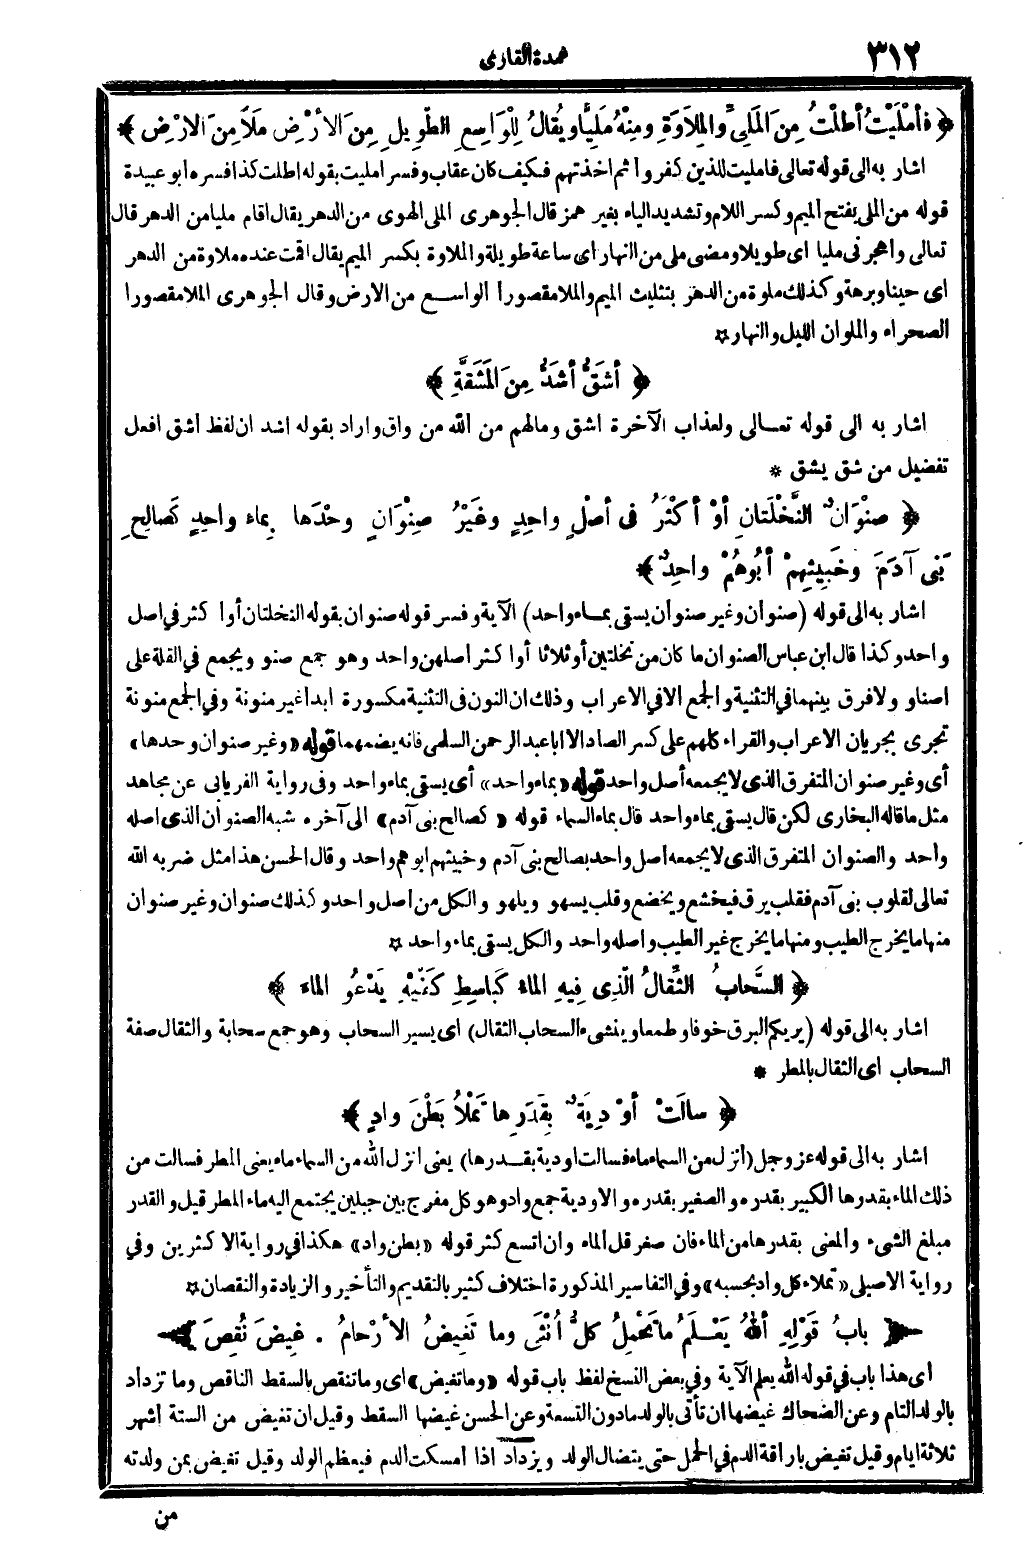 ٣١٢
عمدة القارى
﴿ فَأَمْلَيْتُ أَطَلْتُ مِنَ المَلِيِّ والمِلَاوَةِ ومِنْهُ مَلِيًّا ويُقالُ لِلْوَاسِعِ الطَّوِيلِ مِنَ الأرْضِ مَلًا مِنَ الارْضِ ﴾
اشار به الى قوله تعالى فامليت للذين كفروا ثم اخذتهم فكيف كان عقاب وفسر امليت بقوله اطلت كذا فسره ابو عبيدة
قوله من الملى بفتح الميم وكسر اللام وتشديد الياء بغير همز قال الجوهرى الملى الهوى من الدهر يقال اقام مليا من الدهر قال
تعالى واهجرنى مليا اى طويلا ومضى ملى من النهار اى ساعة طويلة والملاوة بكسر الميم يقال اقمت عنده ملاوة من الدهر
اى حينا وبرهة وكذلك ملوة من الدهر بتثليث الميم والملا مقصورا الواسع من الارض وقال الجوهرى الملا مقصورا
الصحراء والملوان الليل والنهار
﴿ أشَقُّ أشَدُّ مِنَ المَشَقَّةِ ﴾
اشار به الى قوله تعالى ولعذاب الآخرة اشق ومالهم من الله من واق واراد بقوله اشد ان لفظ اشق افعل
تفضيل من شق يشق *
﴿ صِنْوَانٌ النَّخْلَتَانِ أوْ أكْثَرُ فى أصْلٍ واحِدٍ وغَيْرُ صِنْوَانٍ وحْدَها بِماءٍ واحِدٍ كَصالِحِ
بَنى آدَمَ وخَبِيثِهِمْ أبُوهُمْ واحِدٌ ﴾
اشار به الى قوله (صنوان وغير صنوان يسقى بماء واحد) الآية وفسر قوله صنوان بقوله النخلتان أوا كثر في اصل
واحد وكذا قال ابن عباس الصنوان ما كان من نخلتين أو ثلاثا أوا كثر اصلهن واحد وهو جمع صنو ويجمع في القلة على
اصناو ولا فرق بينهما في التثنية والجمع الا في الاعراب وذلك ان النون فى التثنية مكسورة ابدا غير منونة وفي الجمع منونة
تجرى بجريان الاعراب والقراء كلهم على كسر الصاد الا ابا عبد الرحمن السلمى فانه يضمهما قوله «وغير صنوان وحدها»
أى وغير صنوان المتفرق الذى لا يجمعه أصل واحد قوله «بماء واحد» أى يسقى بماء واحد وفى رواية الفريابى عن مجاهد
مثل ما قاله البخارى لكن قال يسقى بماء واحد قال بماء السماء قوله « كصالح بنى آدم» الى آخره شبه الصنوان الذى اصله
واحد والصنوان المتفرق الذى لا يجمعه اصل واحد بصالح بنى آدم وخبيثهم ابوهم واحد وقال الحسن هذا مثل ضربه الله
تعالى لقلوب بنى آدم فقلب يرق فيخشع ويخضع وقلب يسهو ويلهو والكل من اصل واحد وكذلك صنوان وغير صنوان
منها ما يخرج الطيب ومنها ما يخرج غير الطيب واصله واحد والكل يسقى بماء واحد
﴿ السَّحابُ الثِّقالُ الَّذِى فِيهِ الماءُ كَباسِطِ كَفَّيْهِ يَدْعُو الماءَ ﴾
اشار به الى قوله (يريكم البرق خوفا وطمعا وينشىء السحاب الثقال) اى يسير السحاب وهو جمع سحابة والثقال صفة
السحاب اى الثقال بالمطر *
﴿ سالَتْ أوْدِيَةٌ بِقَدَرِها تَمْلأُ بَطْنَ وادٍ ﴾
اشار به الى قوله عز وجل (أنزل من السماء ماء فسالت اودية بقدرها) يعنى انزل الله من السماء ماء يعنى المطر فسالت من
ذلك الماء بقدرها الكبير بقدره والصغير بقدره والاودية جمع واد وهو كل مفرج بين جبلين يجتمع اليه ماء المطر قيل والقدر
مبلغ الشىء والمعنى بقدرها من الماء فان صغر قل الماء وان اتسع كثر قوله «بطن واد» هكذا في رواية الا كثرين وفي
رواية الاصيلى «تملاء كل واد بحسبه» وفي التفاسير المذكورة اختلاف كثير بالتقديم والتأخير والزيادة والنقصان
﴿ بابُ قَوْلِهِ أللهُ يَعْلَمُ ما تَحْمِلُ كلُّ أُنْثَى وما تَغِيضُ الأرْحامُ . غِيضَ نُقِصَ ﴾
اى هذا باب في قوله الله يعلم الآية وفي بعض النسخ لفظ باب قوله «وما تغيض» اى وما تنقص بالسقط الناقص وما تزداد
بالولد التام وعن الضحاك غيضها ان تأتى بالولد ما دون التسعة وعن الحسن غيضها السقط وقيل ان تغيض من الستة اشهر
ثلاثة ايام وقيل تغيض باراقة الدم في الحمل حتى يتضال الولد ويزداد اذا أمسكت الدم فيعظم الولد وقيل تغيض بمن ولدته
من